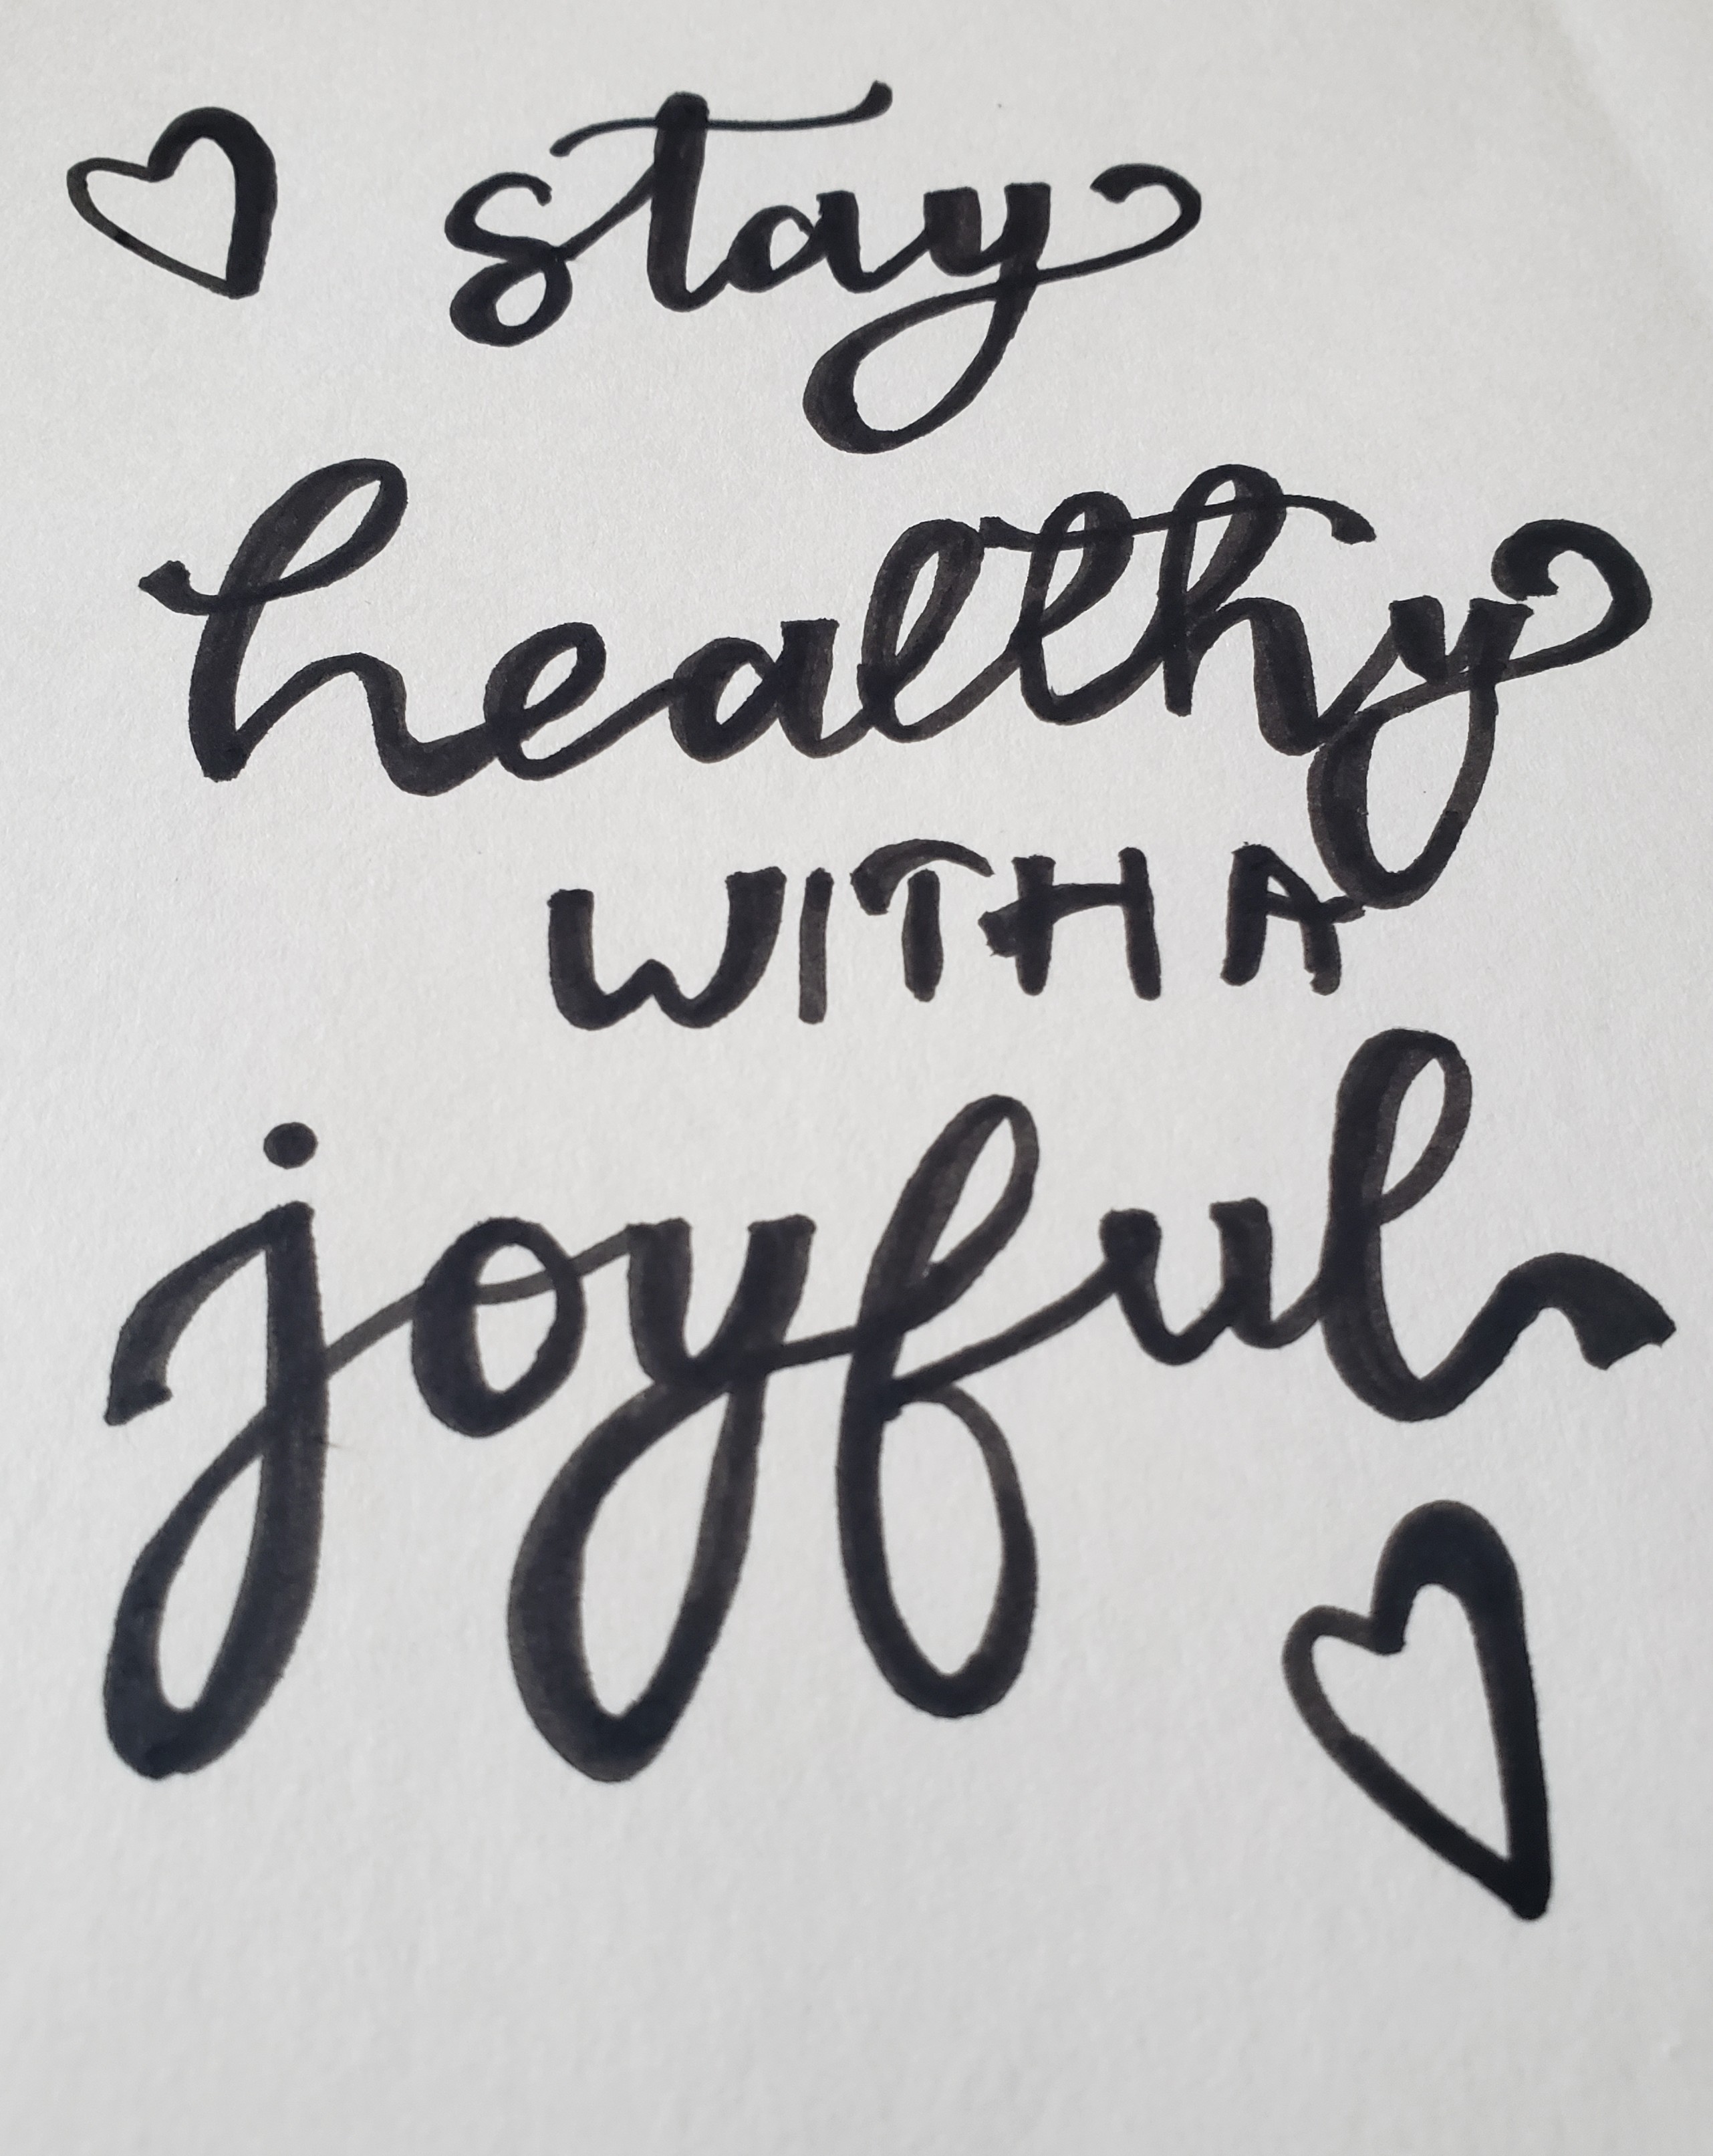 stay
healthy
WITH A
joyful